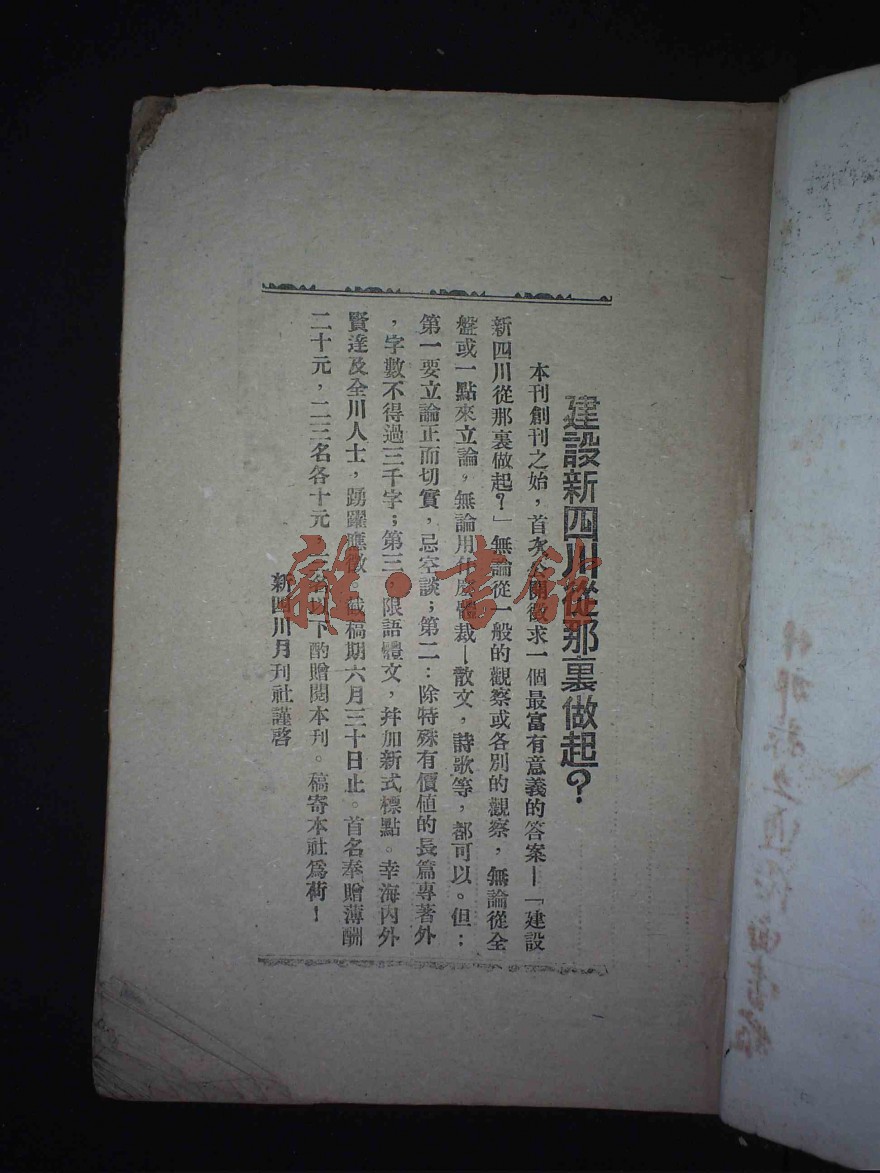 建設新四川從那裏做起？
本刊創刊之始，首次公開徵求一個最富有意義的答案—「建設
新四川從那裏做起？」無論從一般的觀察或各別的觀察，無論從全
盤或一點來立論，無論用什麼體裁—散文，詩歌等，都可以。但：
第一要立論正而切實，忌空談；第二：除特殊有價值的長篇專著外
，字數不得過三千字；第三，限語體文，幷加新式標點。幸海內外
賢達及全川人士，踴躍應徵。截稿期六月三十日止。首名奉贈薄酬
二十元，二三名各十元，三名以下酌贈閱本刊。稿寄本社爲荷！
新四川月刊社謹啓
雜·書館